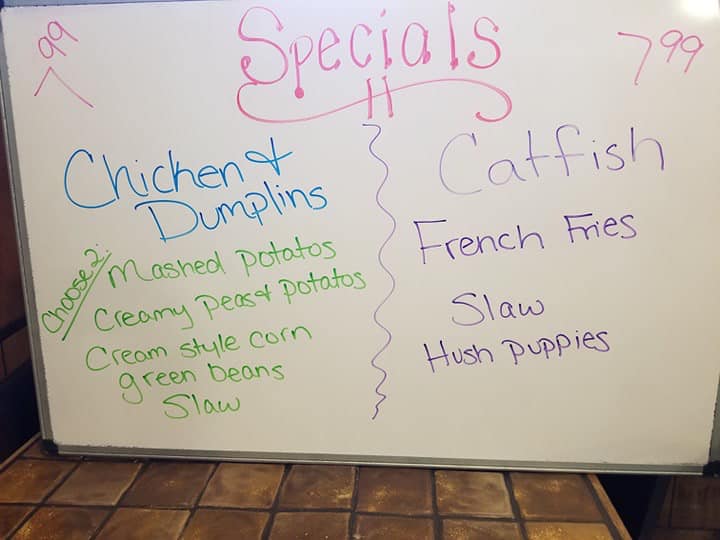 7 99
Specials
7 99
Chicken &
Dumplins
Choose 2:
Mashed Potatos
Creamy Peas & Potatos
Cream style corn
green beans
Slaw
Catfish
French Fries
Slaw
Hush Puppies